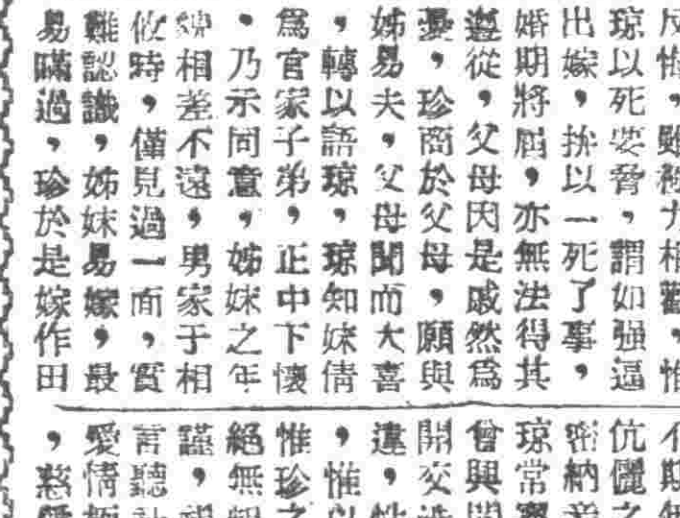 反悔，雖極力相勸，惟
琼以死要脅，謂如强逼
出嫁，拚以一死了事，
婚期將屆，亦無法得其
遵從，父母因是戚然爲
憂，珍商於父母，願與
姊易夫，父母聞而大喜
，轉以語琼，琼知妹倩
爲官家子弟，正中下懷
，乃示同意，姊妹之年
相差不遠，男家于相
攸時，僅見過一面，實
難認識，姊妹易嫁，最
易瞞過，珍於是嫁作田
伉儷之
密納
琼常
曾與
開交
違，性
，惟以
惟珍之
絕無
謹，
言聽
愛情極
，慈